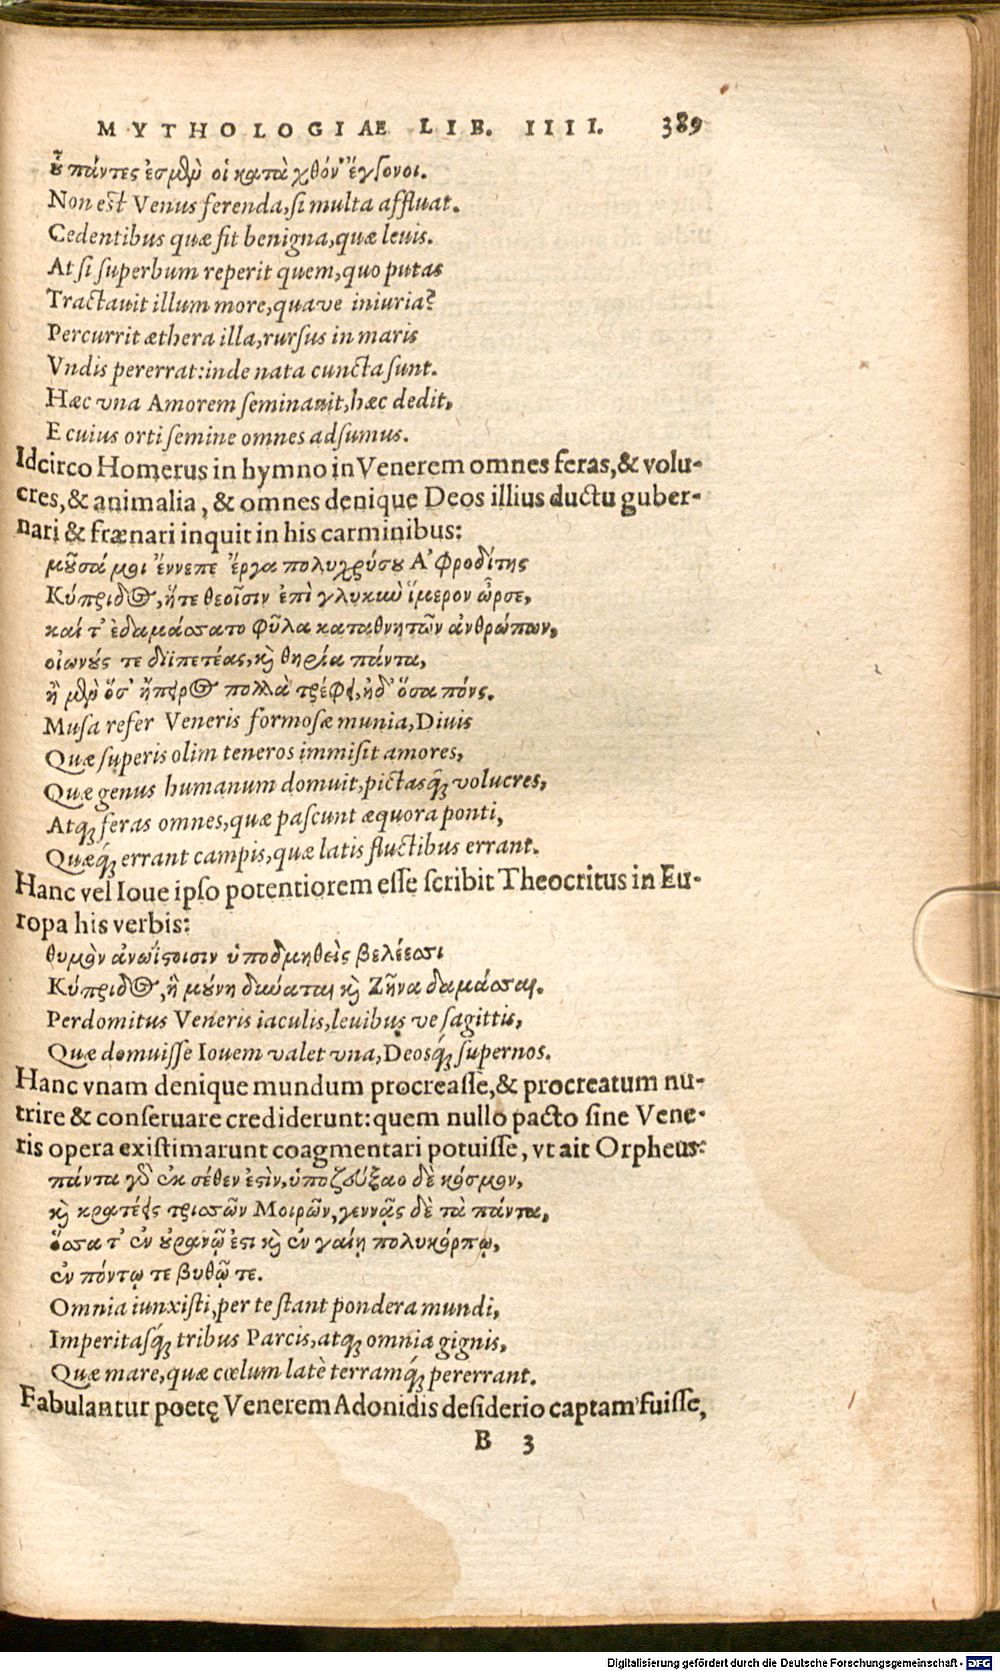 MYTHOLOGIAE LIB. IIII. 389
οὗ πάντες ἐσμὲν οἱ κατὰ χθόν' ἔγγονοι.
Non est Venus ferenda, si multa affluat.
Cedentibus quæ fit benigna, quæ leuis.
At si superbum reperit quem, quo putas
Tractauit illum more, quáve iniuria?
Percurrit æthera illa, rursus in maris
Vndis pererrat: inde nata cuncta sunt.
Hæc vna Amorem seminauit, hæc dedit,
E cuius orti semine omnes adsumus.
Idcirco Homerus in hymno in Venerem omnes feras, & volu-
cres, & animalia, & omnes denique Deos illius ductu guber-
nari & frænari inquit in his carminibus:
μοῦσά μοι ἔννεπε ἔργα πολυχρύσου Ἀφροδίτης
Κύπριδος, ἥτε θεοῖσιν ἐπὶ γλυκὺν ἵμερον ὦρσε,
καί τ' ἐδαμάσσατο φῦλα καταθνητῶν ἀνθρώπων,
οἰωνούς τε διϊπετέας, καὶ θηρία πάντα,
ἢ μὲν ὅσ' ἤπειρος πολλὰ τρέφει, ἠδ' ὅσα πόντος.
Musa refer Veneris formosæ munia, Diuis
Quæ superis olim teneros immisit amores,
Quæ genus humanum domuit, pictasq́; volucres,
Atq; feras omnes, quæ pascunt æquora ponti,
Quæq́; errant campis, quæ latis fluctibus errant.
Hanc vel Ioue ipso potentiorem esse scribit Theocritus in Eu-
ropa his verbis:
θυμὸν ἀνωΐστοισιν ὑποδμηθεὶς βελέεσσι
Κύπριδος, ἣ μούνη δύναται καὶ Ζῆνα δαμάσσαι.
Perdomitus Veneris iaculis, leuibus ve sagittis,
Quæ domuisse Iouem valet vna, Deosq́; supernos.
Hanc vnam denique mundum procreasse, & procreatum nu-
trire & conseruare crediderunt: quem nullo pacto sine Vene-
ris opera existimarunt coagmentari potuisse, vt ait Orpheus:
πάντα γὸ ἐκ σέθεν ἐστὶν, ὑποζεύξαο δὲ κόσμον,
καὶ κρατέεις τρισσῶν Μοιρῶν, γεννᾷς δὲ τὰ πάντα,
ὅσσα τ' ἐν οὐρανῷ ἐστι καὶ ἐν γαίῃ πολυκάρπῳ,
ἐν πόντῳ τε βυθῷ τε.
Omnia iunxisti, per te stant pondera mundi,
Imperitasq́; tribus Parcis, atq; omnia gignis,
Quæ mare, quæ cœlum latè terramq́; pererrant.
Fabulantur poetę Venerem Adonidis desiderio captam fuisse,
B 3
Digitalisierung gefördert durch die Deutsche Forschungsgemeinschaft - DFG